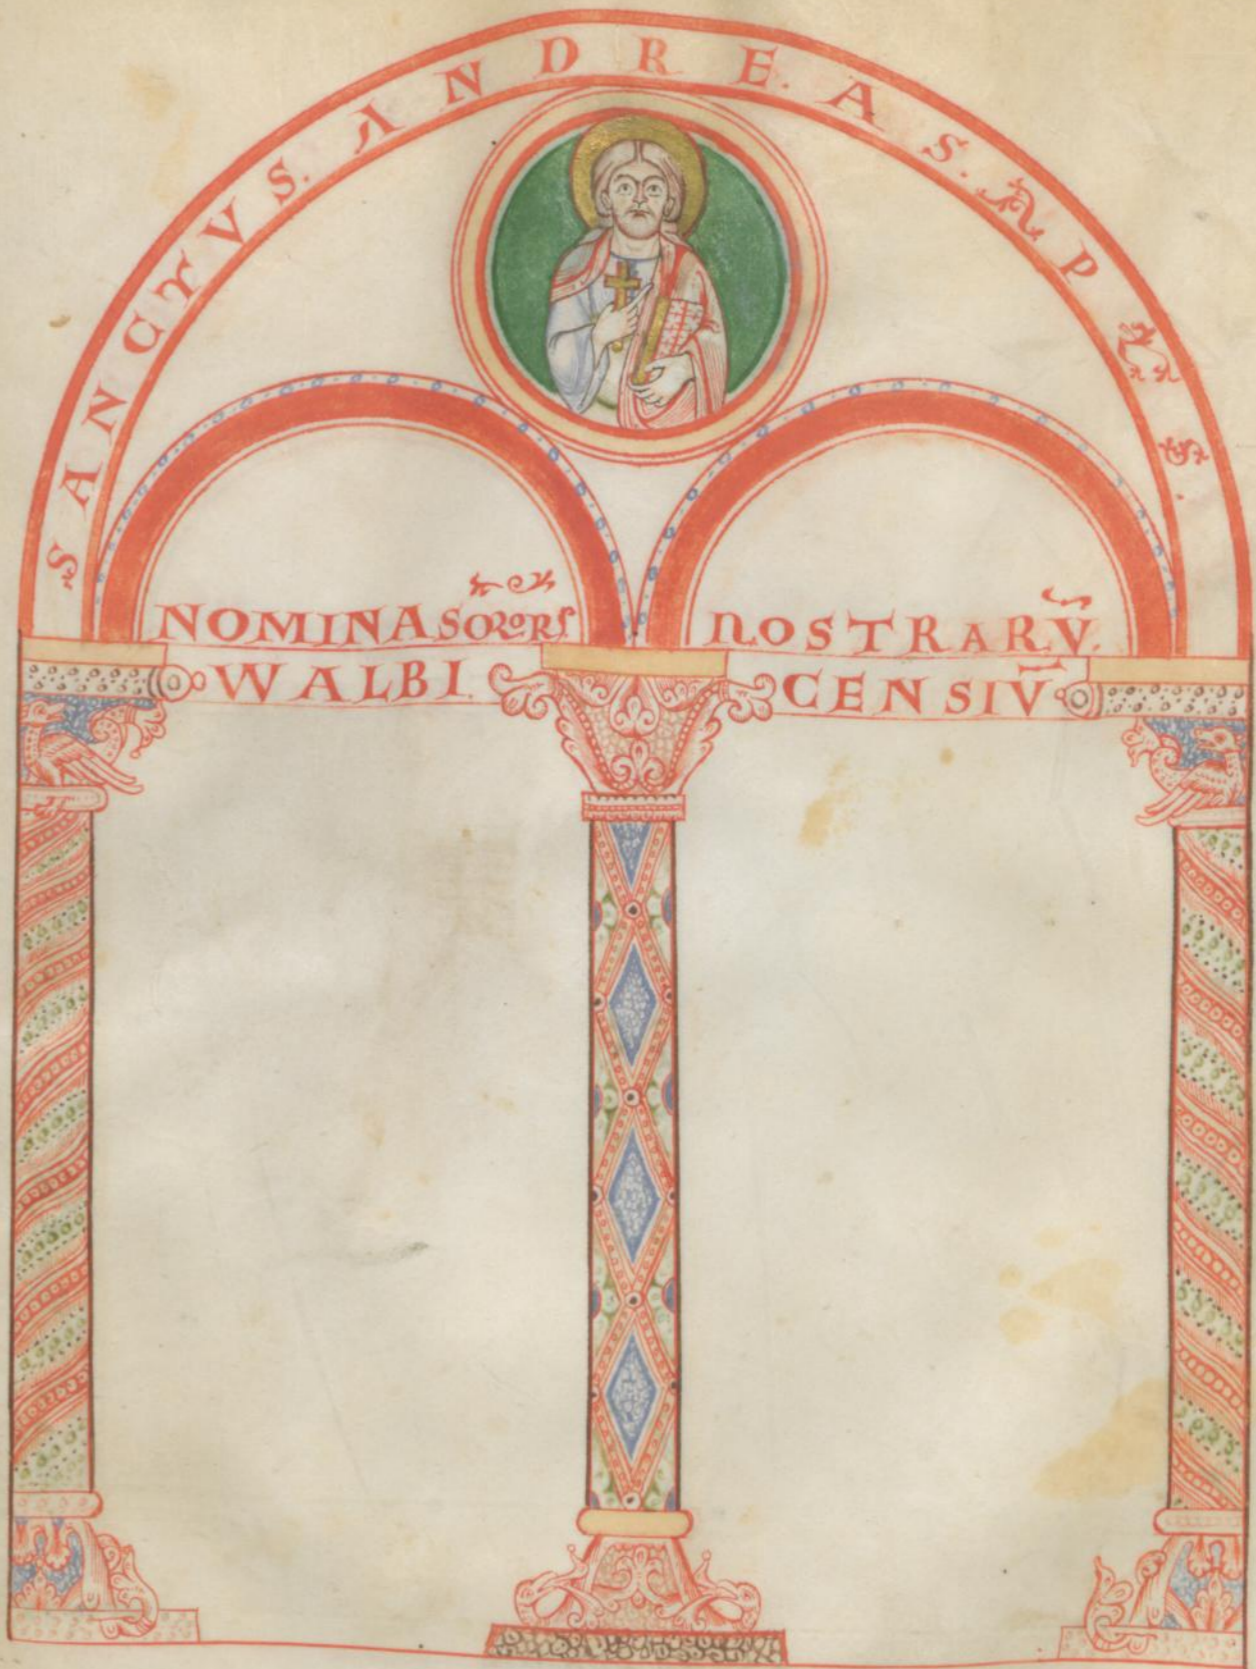 SANCTVS. ANDREAS. APLS.
NOMINA SORORS NOSTRARV̄.
WALBICENSIV̄